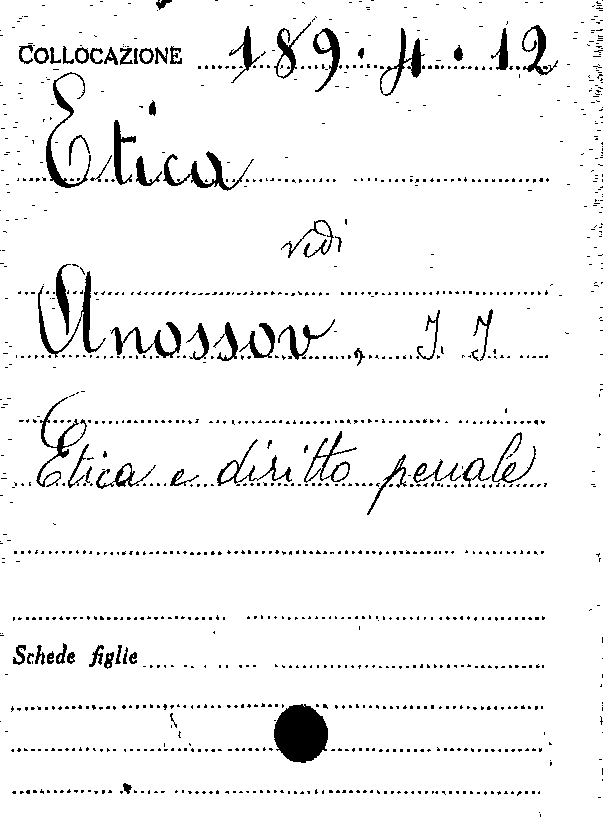 COLLOCAZIONE 189. H. 12
Etica
vedi
Anossov, J. J.
Etica e diritto penale
Schede figlie